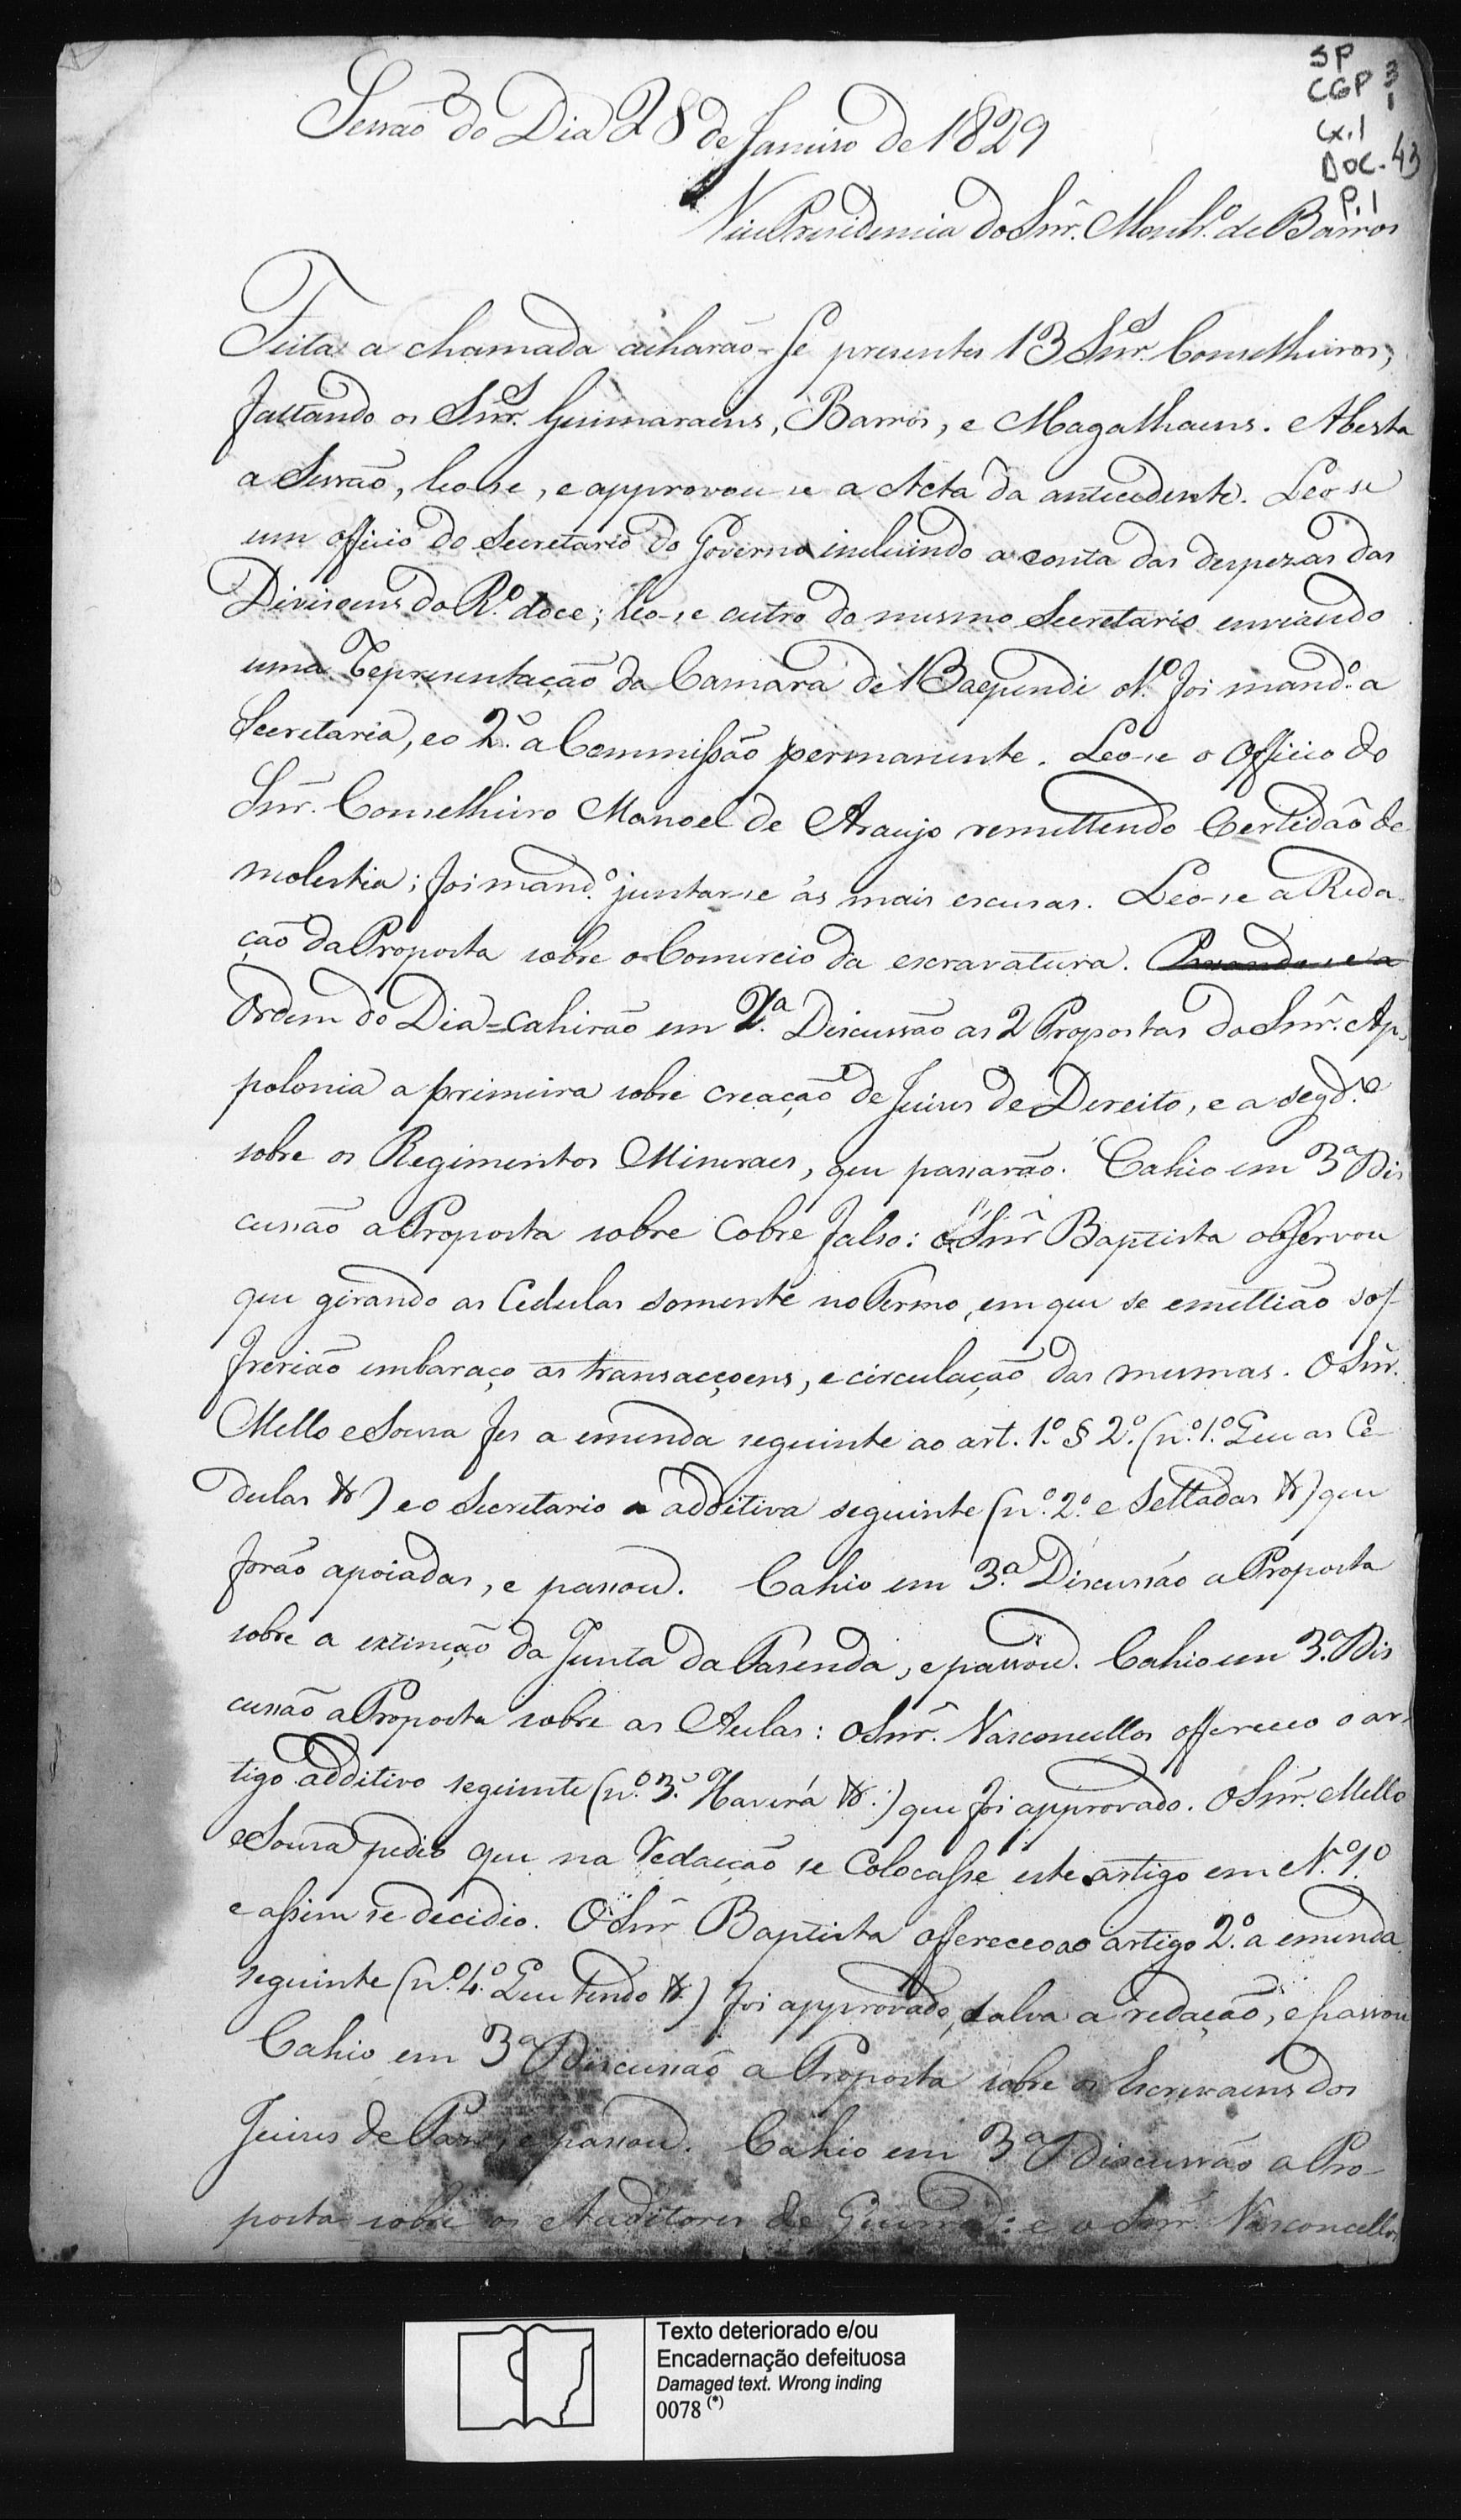 SP
CGP 3
1
Cx.1
DOC. 43
P.1
Sessão do Dia 28 de Janeiro de 1829
Vice Presidencia do Snr. Montr.º de Barros
Feita a chamada acharão-se presentes 13 Snr.es Conselheiros,
faltando os Snr.es Guimaraens, Barros, e Magalhaens. Aberta
a Sessão, leo-se, e approvou-se a Acta da antecedente. Leo-se
um officio do Secretario do Governo incluindo a conta das despezas das
Divisoens do R.º doce; leo-se outro do mesmo Secretario enviando
uma Representação da Camara de Baependi o 1.º foi mand.º a
Secretaria, e o 2.º a Commissão permanente. Leo-se o Officio do
Snr. Conselheiro Manoel de Araujo remettendo Certidão de
molestia; foi mand.º juntar-se ás mais escusas. Leo-se a Reda-
ção da Proposta sobre o Comercio da escravatura. Passando-se a
Ordem do Dia = cahirão em 2.ª Discussão as 2 Propostas do Snr. Ap-
polonia a primeira sobre creação de Juizes de Dereito, e a segd.ª
sobre os Regimentos Mineraes, que passarão. Cahio em 3.ª Dis
cussão a Proposta sobre Cobre falso: o Snr Baptista observou
que girando as Cedulas somente no Termo, em que se emettião sof-
frerião embaraço as transacçoens, e circulação das mesmas. O Snr.
Mello e Souza fes a emenda seguinte ao art. 1.º § 2.º (n.º 1.º Que as Ce-
dulas &) e o Secretario a additiva seguinte (n.º 2.º e Selladas &) que
forão apoiadas, e passou. Cahio em 3.ª Discussão a Proposta
sobre a extinção da Junta da Fasenda, e passou. Cahio em 3.ª Dis
cussão a Proposta sobre as Aulas: o Snr. Vasconcellos offereceo o ar-
tigo additivo seguinte (n.º 3.º Haverá &.) que foi approvado. O Snr. Mello
e Souza pedio que na Redacção se Colocasse este artigo em N.º 1.º
e assim se decidio. O Snr Baptista offereceo ao artigo 2.º a emenda
seguinte (n.º 4.º Que tendo &.) foi approvado, salva a redação, e passou
Cahio em 3.ª Discussão a Proposta sobre os Escrivaens dos
Juizes de Paz, e passou. Cahio em 3.ª Discussão a Pro-
posta sobre os Auditores de Guerra: e o Snr. Vasconcellos
Texto deteriorado e/ou
Encadernação defeituosa
Damaged text. Wrong inding
0078 (*)